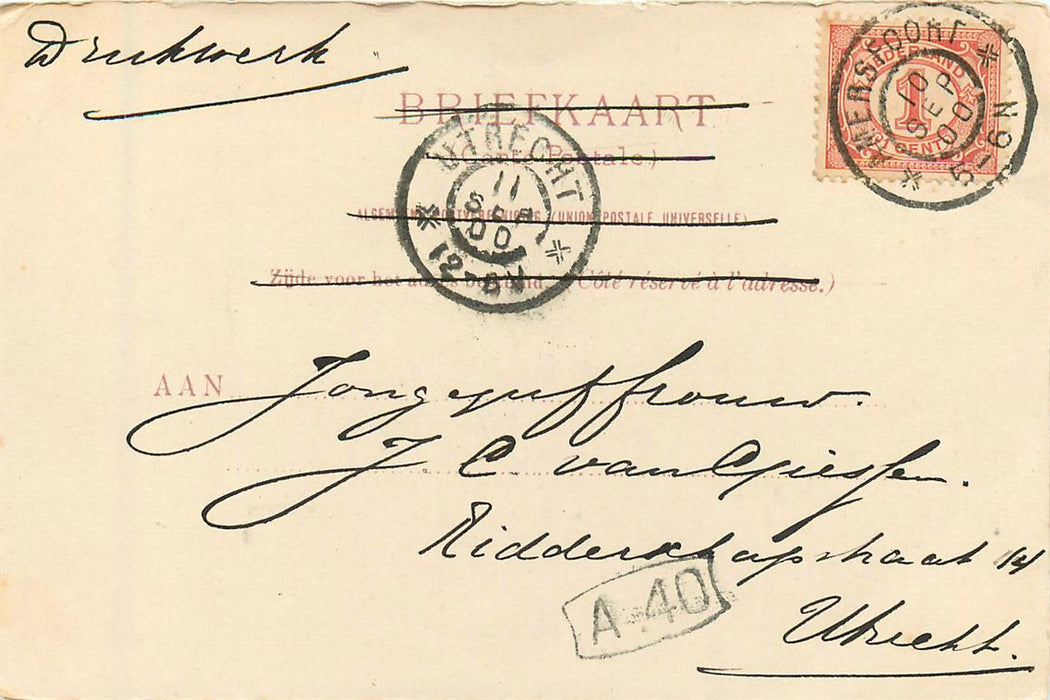 Drukwerk
BRIEFKAART
(Carte Postale.)
ALGEMEENE POSTVEREENIGING (UNION POSTALE UNIVERSELLE)
Zijde voor het adres bestemd. (Côté réservé à l'adresse.)
NEDERLAND
1
CENT
AMERSFOORT
10
SEP
00
5-6N
UTRECHT
11
SEP
00
12-8V
AAN Jongejuffrouw.
J C van Giessen.
Ridderschapstraat 14
A-40
Utrecht.